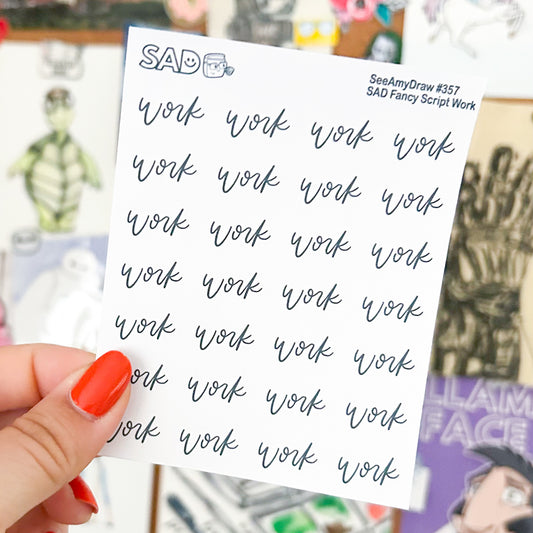 SAD
SeeAmyDraw #357
SAD Fancy Script Work
work work work work
work work work work
work work work work
work work work work
work work work work
work work work work
work work work work
LLAM
FACE